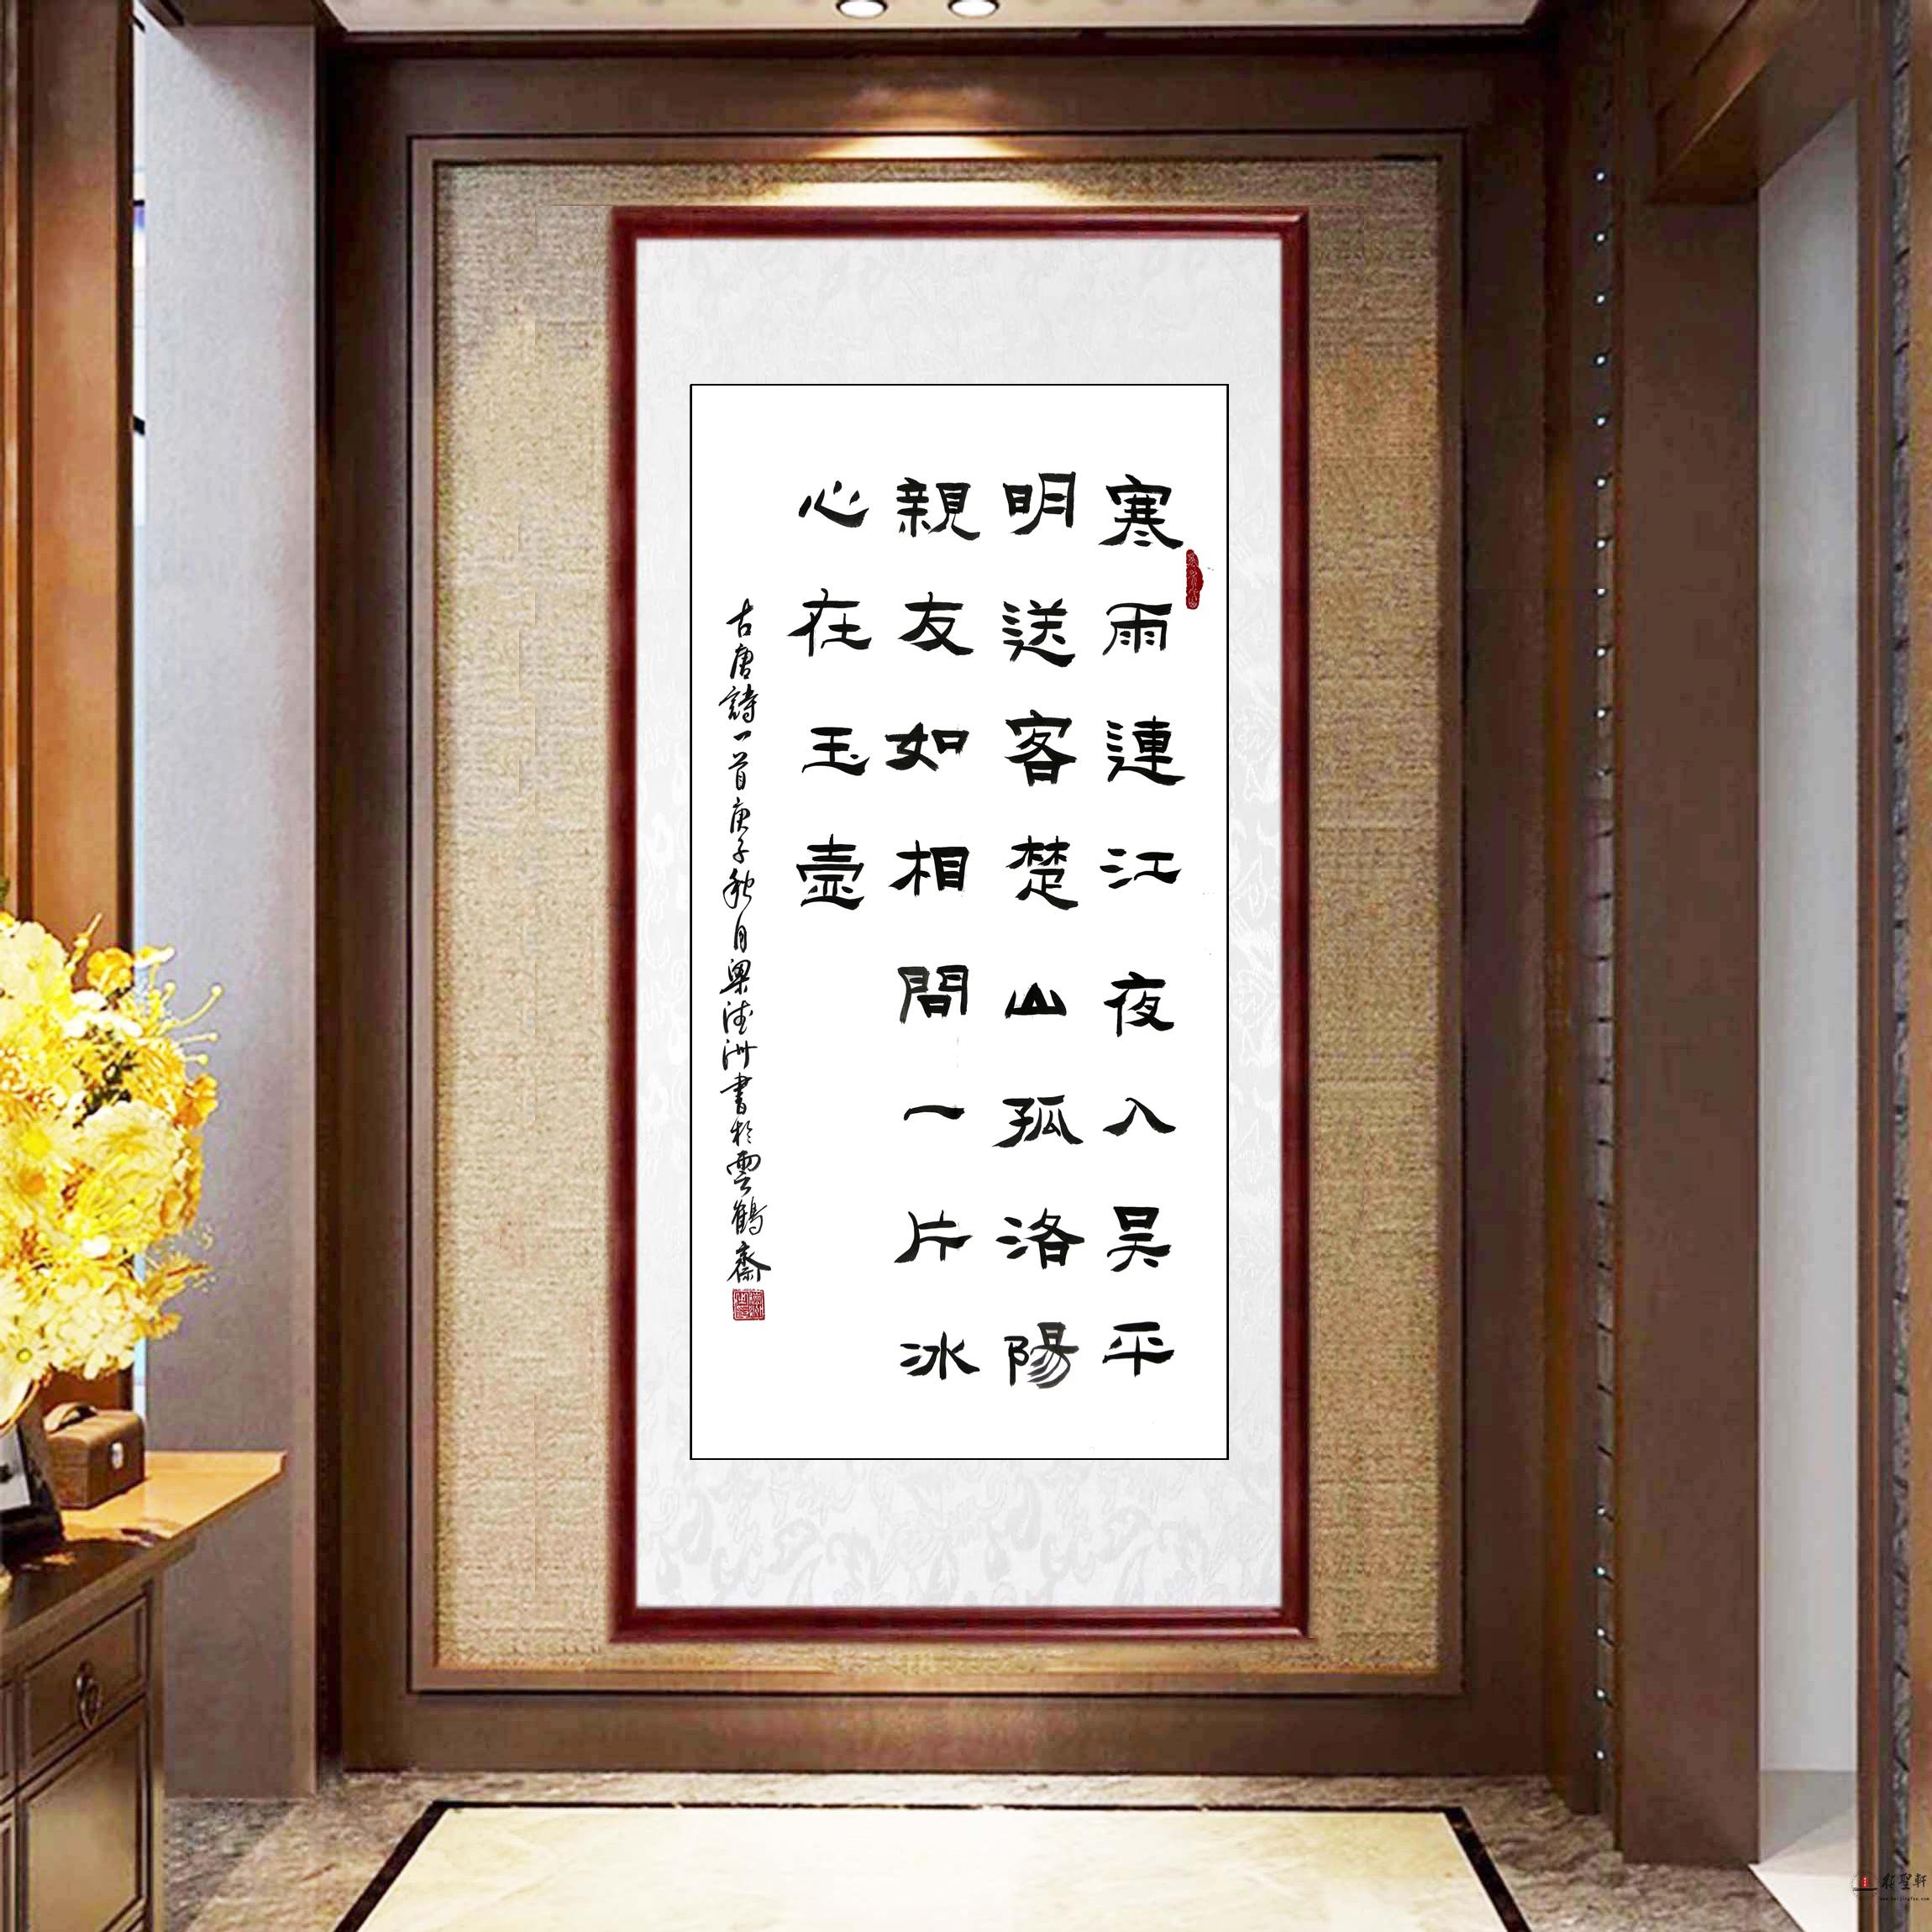 寒雨連江夜入吴平
明送客楚山孤洛陽
親友如相問一片冰
心在玉壺
古唐詩一首庚子秋月梁洲書於雲鶴齋
聖軒